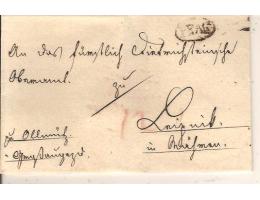 PRAG
An das fürstlich Dietrichsteinsche
Oberamt
zu
Leipnik
in Mähren.
zu Ollmütz